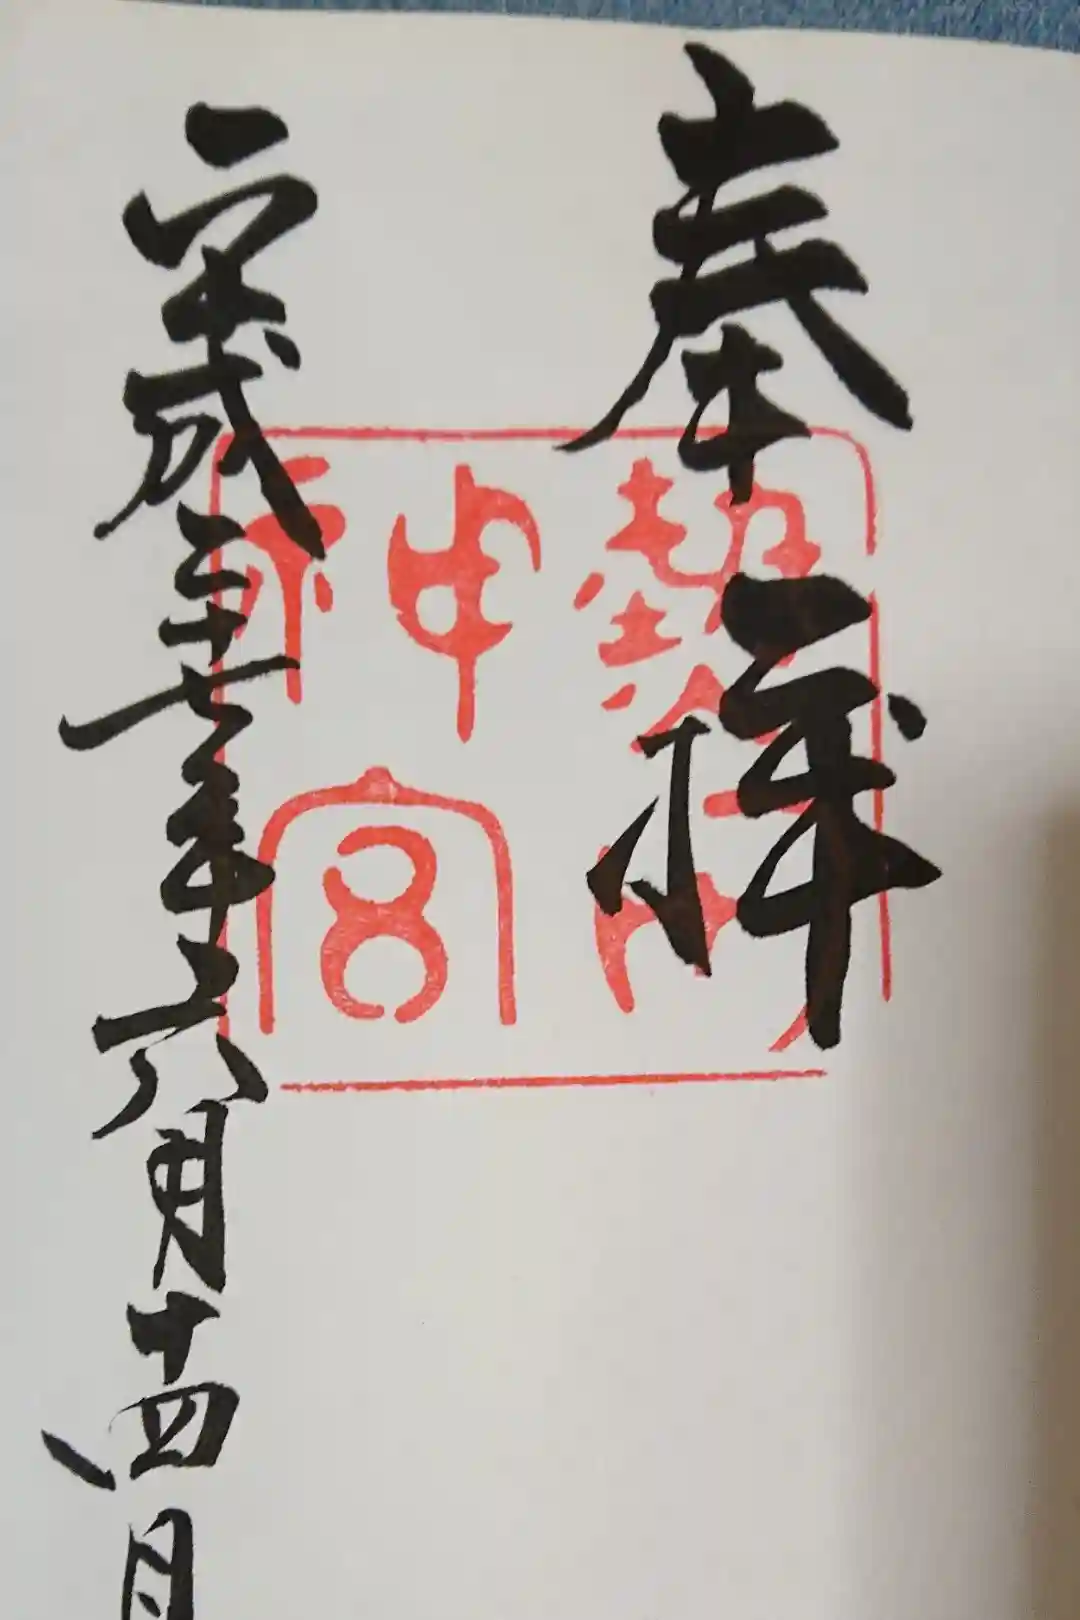 奉拝
熱田
神宮
平成二十七年六月十四日